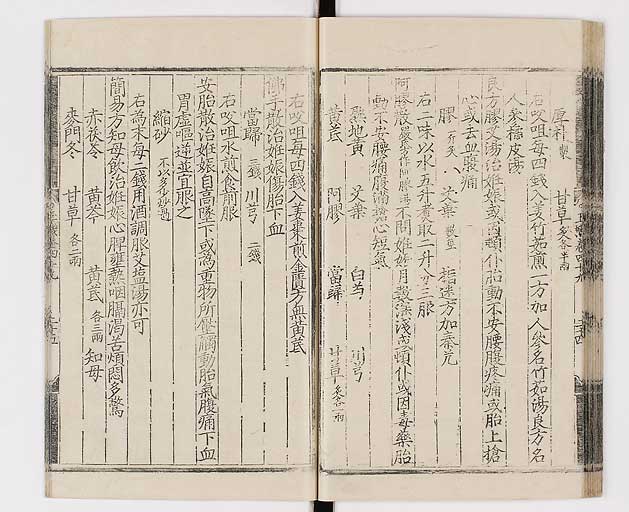 厚朴製 甘草各半兩
右㕮咀每四錢入姜竹茹煎一方加人參名竹茹湯良方名
人參橘皮湯
良方膠艾湯治姙娠或頓仆胎動不安腰腹疼痛或胎上搶
心或去血腹痛
膠 艾葉 指迷方加秦艽
右二味以水五升煮取二升分三服
阿膠散不問姙娠月數深淺或頓仆或因毒藥胎
動不安腰痛腹滿搶心短氣
熟地黃 艾葉 白芍 川芎
黃芪 阿膠 當歸 甘草各一兩
右㕮咀每四錢入姜棗煎金匱方無黃芪
佛手散治姙娠傷胎下血
當歸 川芎二錢
右㕮咀水煎食前服
安胎散治姙娠自高墜下或爲重物所壓觸動胎氣腹痛下血
胃虛嘔逆並宜服之
縮砂不以多少炒
右爲末每二錢用酒調服艾鹽湯亦可
簡易方知母飲治姙娠心脾壅熱咽膈渴苦煩悶多驚
赤茯苓 黃芩 黃芪各三兩 知母
麥門冬 甘草各二兩